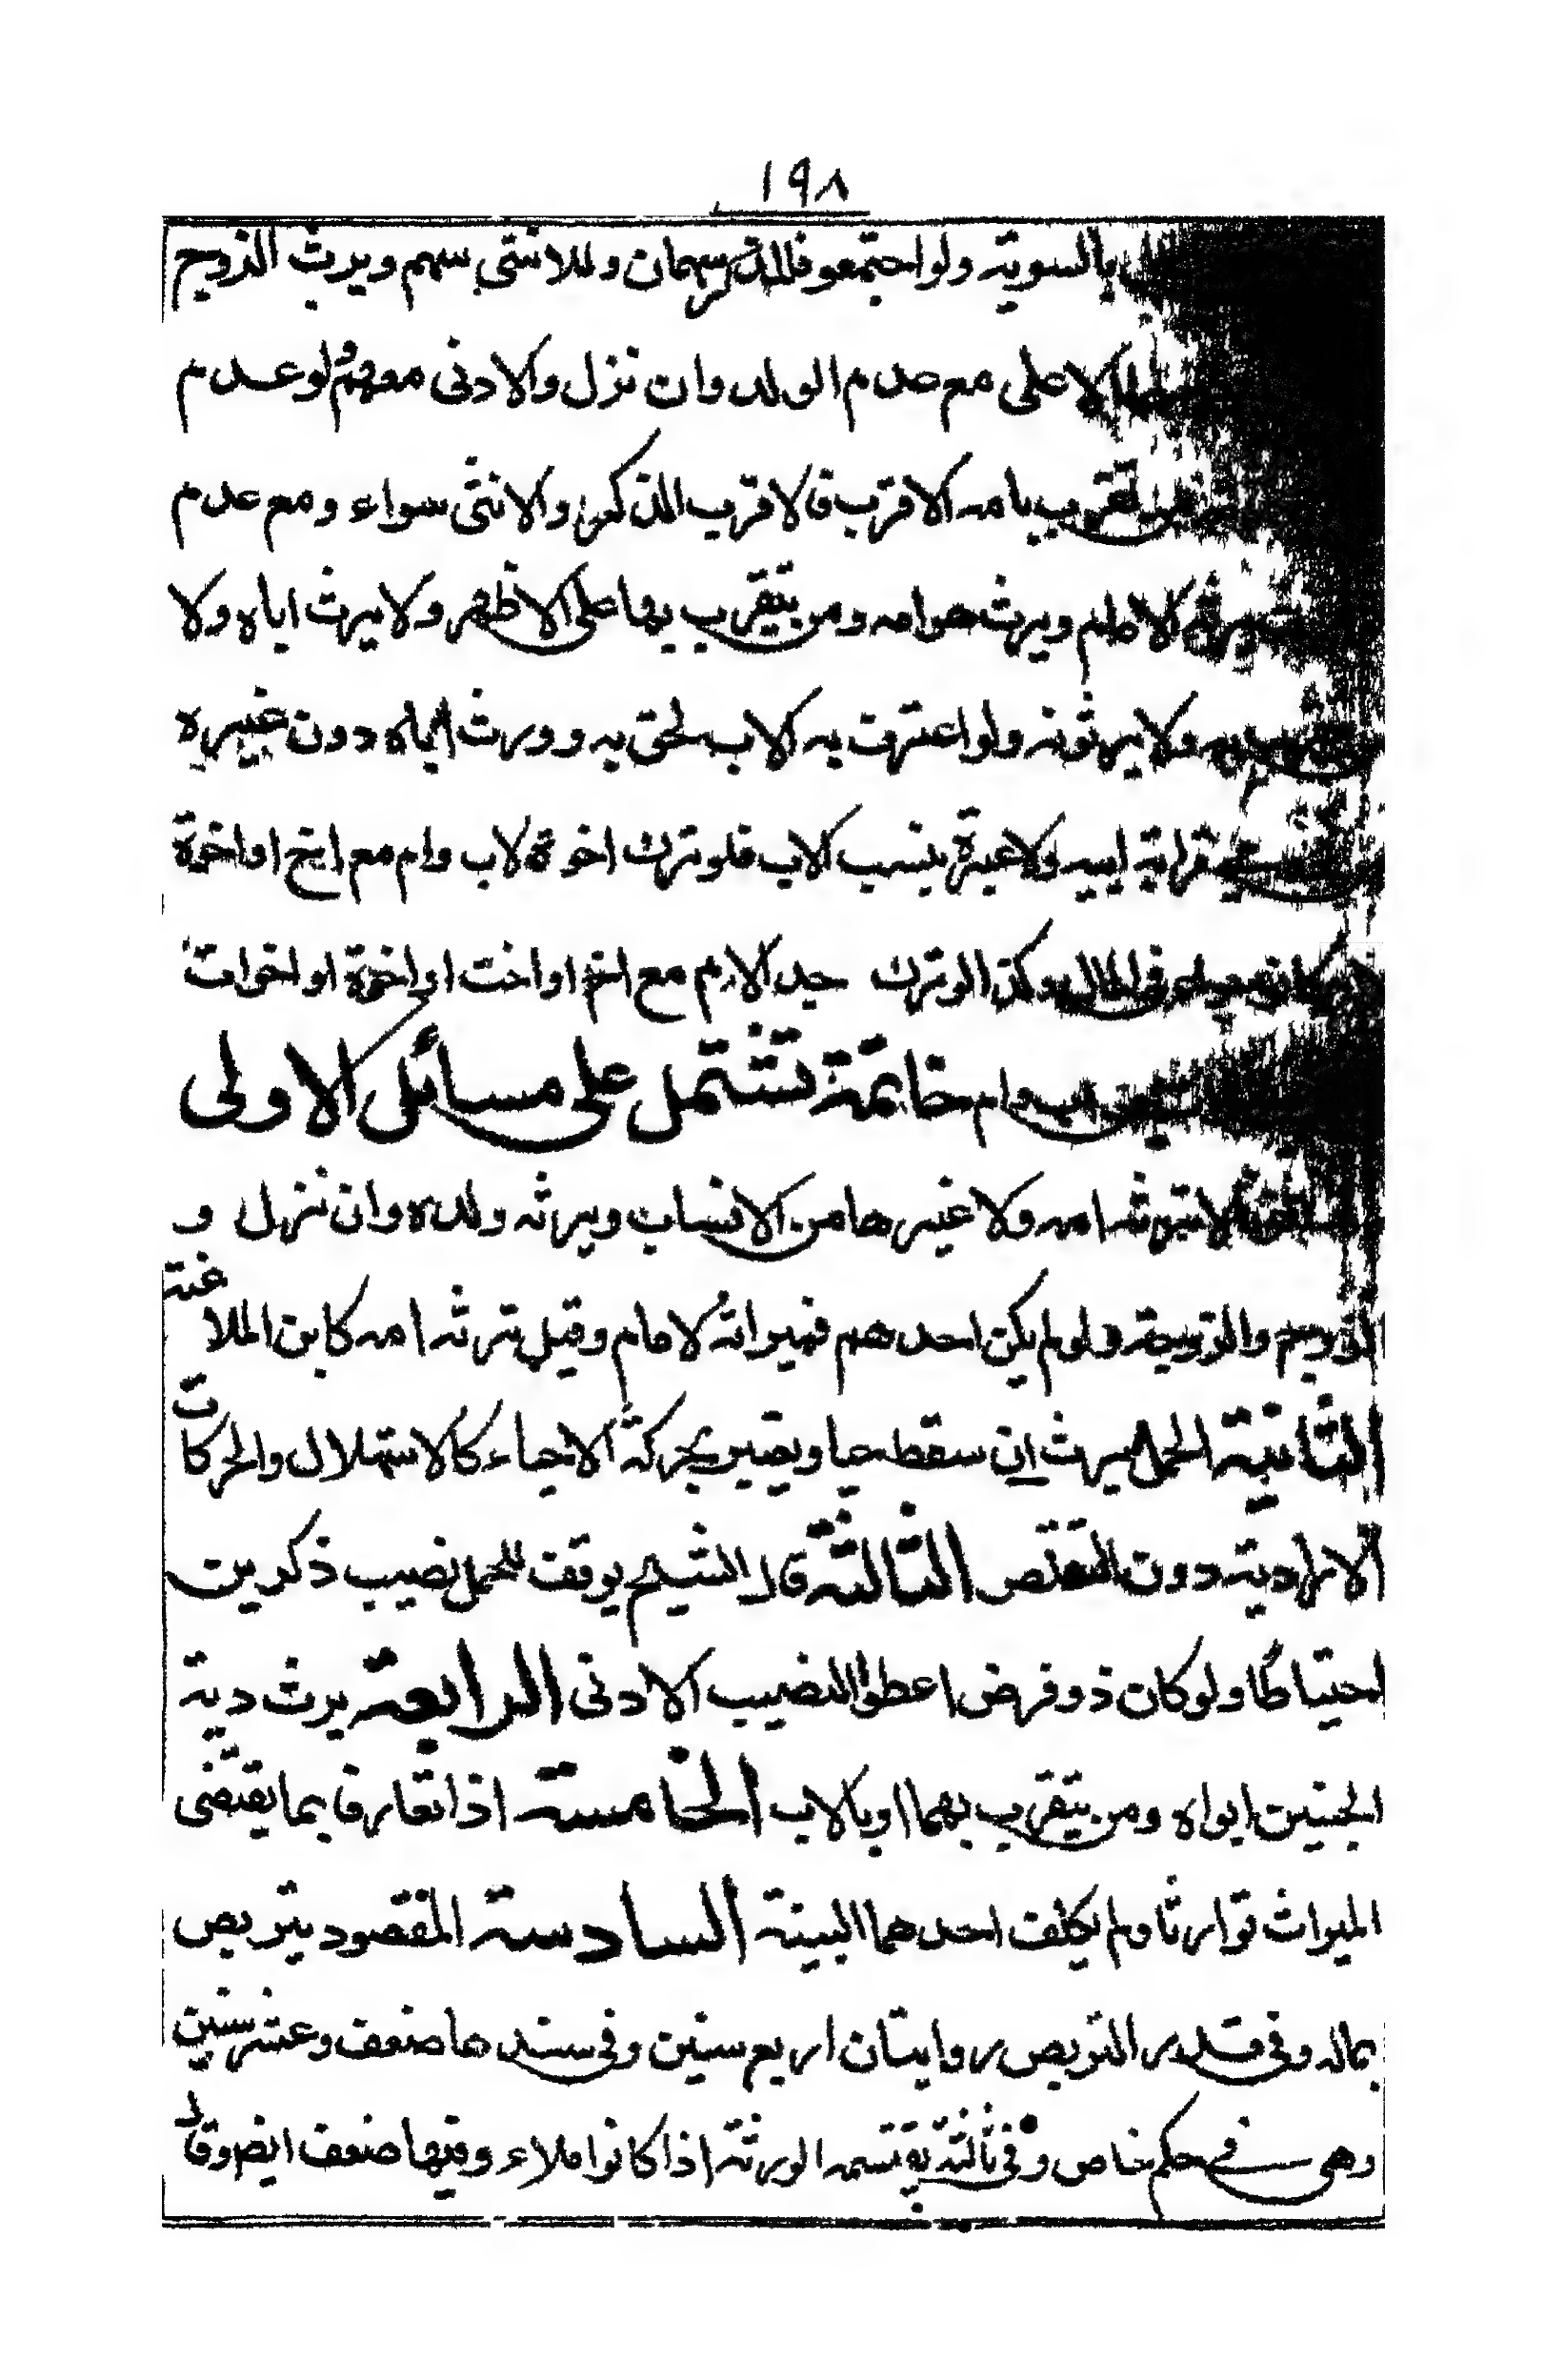 ١٩٨
بالسوية ولو اجتمعو فللذكر سهمان وللانثى سهم ويرث الزوج
الاعلى مع عدم الولد وان نزل والادنى معهم ولو عدم
يتقرب بامه الاقرب فالاقرب الذكر والانثى سواء ومع عدم
يرثه الامام ويرث هو امه ومن يتقرب بها على الاظهر ولا يرث اباه ولا
به ولا يرثونه ولو اعترف به الاب لحق به وورث اباه دون غيره
قرابة ابيه ولا عبرة بنسب الاب فلو ترك اخوة لاب وام مع اخ او اخوة
كانوا سواء فى المال وكذا لو ترك جد الام مع اخ او اخت او اخوة او اخوات
من اب وام خاتمة تشتمل على مسائل الاولى
لا ترثه امه ولا غيرها من الانساب ويرثه ولده وان نزل و
الزوج والزوجة ولو لم يكن احدهم فميراثه لامام وقيل ترثه امه كابن الملاعنة
الثانية الحمل يرث ان سقط حيا ويعتبر بحركة الاحياء كالاستهلال والحركات
الارادية دون التقلص الثالثة قال الشيخ يوقف للحمل نصيب ذكرين
احتياطا ولو كان ذو فرض اعطوا النصيب الادنى الرابعة يرث دية
الجنين ابواه ومن يتقرب بهما او بالاب الخامسة اذا تعارفا بما يقتضى
الميراث توارثا ولم يكلف احدهما البينة السادسة المفقود يتربص
بماله وفى قدر التربص روايتان اربع سنين وفى سندها ضعف وعشر سنين
وهى فى حكم خاص وفى ثالثة يقتسمه الورثة اذا كانوا ملاء وفيها ضعف ايضا وقال